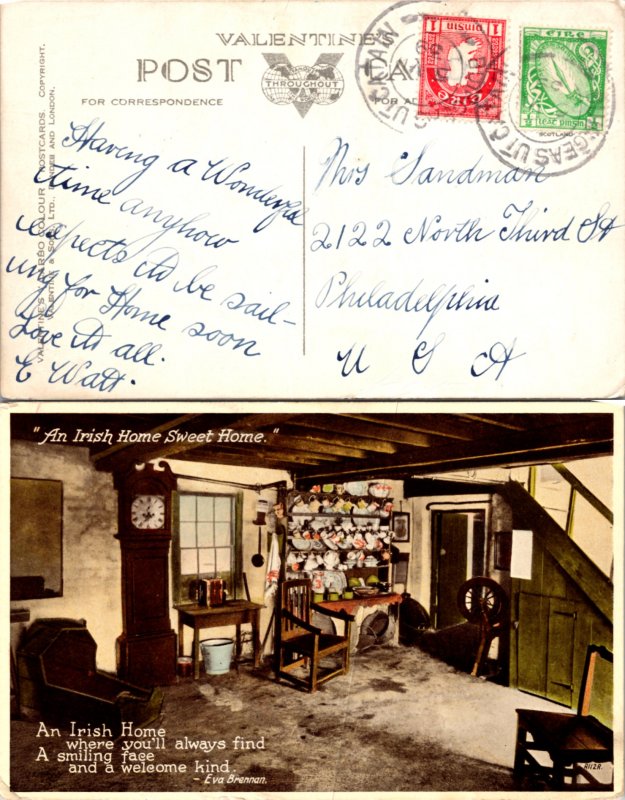 VALENTINE'S
POST CARD
FAMOUS THROUGHOUT THE WORLD
FOR CORRESPONDENCE
VALENTINE'S "CARBO COLOUR" POSTCARDS. COPYRIGHT.
VALENTINE & SONS LTD., DUNDEE AND LONDON.
SCOTLAND
1 pinsin
éire
éire
½ leat pinsin
Having a Wonderful
time anyhow
expects to be sail-
ing for Home soon
Love to all.
E Watt.
Mrs Sandman
2122 North Third St
Philadelphia
U S A
"An Irish Home Sweet Home."
An Irish Home
where you'll always find
A smiling face
and a welcome kind.
- Eva Brennan.